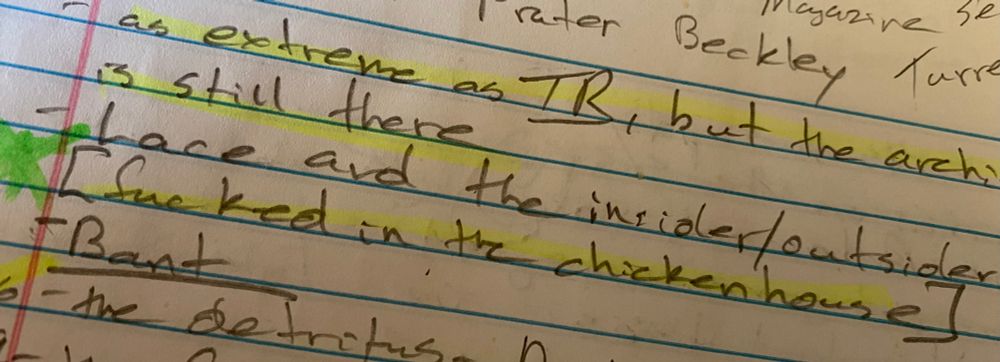 Magazine Se
Prater Beckley Turre
- as extreme as TR, but the archi
is still there
- Lace and the insider/outsider
[fucked in the chickenhouse]
- Bant
- the detritus